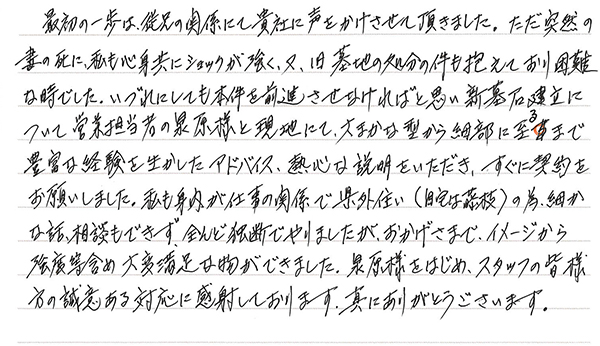 最初の一歩は、従兄の関係にて貴社に声をかけさせて頂きました。ただ突然の
妻の死に、私も心身共にショックが強く、又、旧墓地の処分の件も抱えており困難
な時でした。いづれにしても本件を前進させなければと思い新墓石建立に
ついて営業担当者の泉原様と現地にて、大まかな型から細部に至るまで
豊富な経験を生かしたアドバイス、熱心な説明をいただき、すぐに契約を
お願いしました。私も身内が仕事の関係で県外住い(自宅は藤枝)の為、細か
な話、相談もできず、全んど独断でやりましたが、おかげさまで、イメージから
強度等含め大変満足な物ができました。泉原様をはじめ、スタッフの皆様
方の誠意ある対応に感射しております。真にありがとうございます。